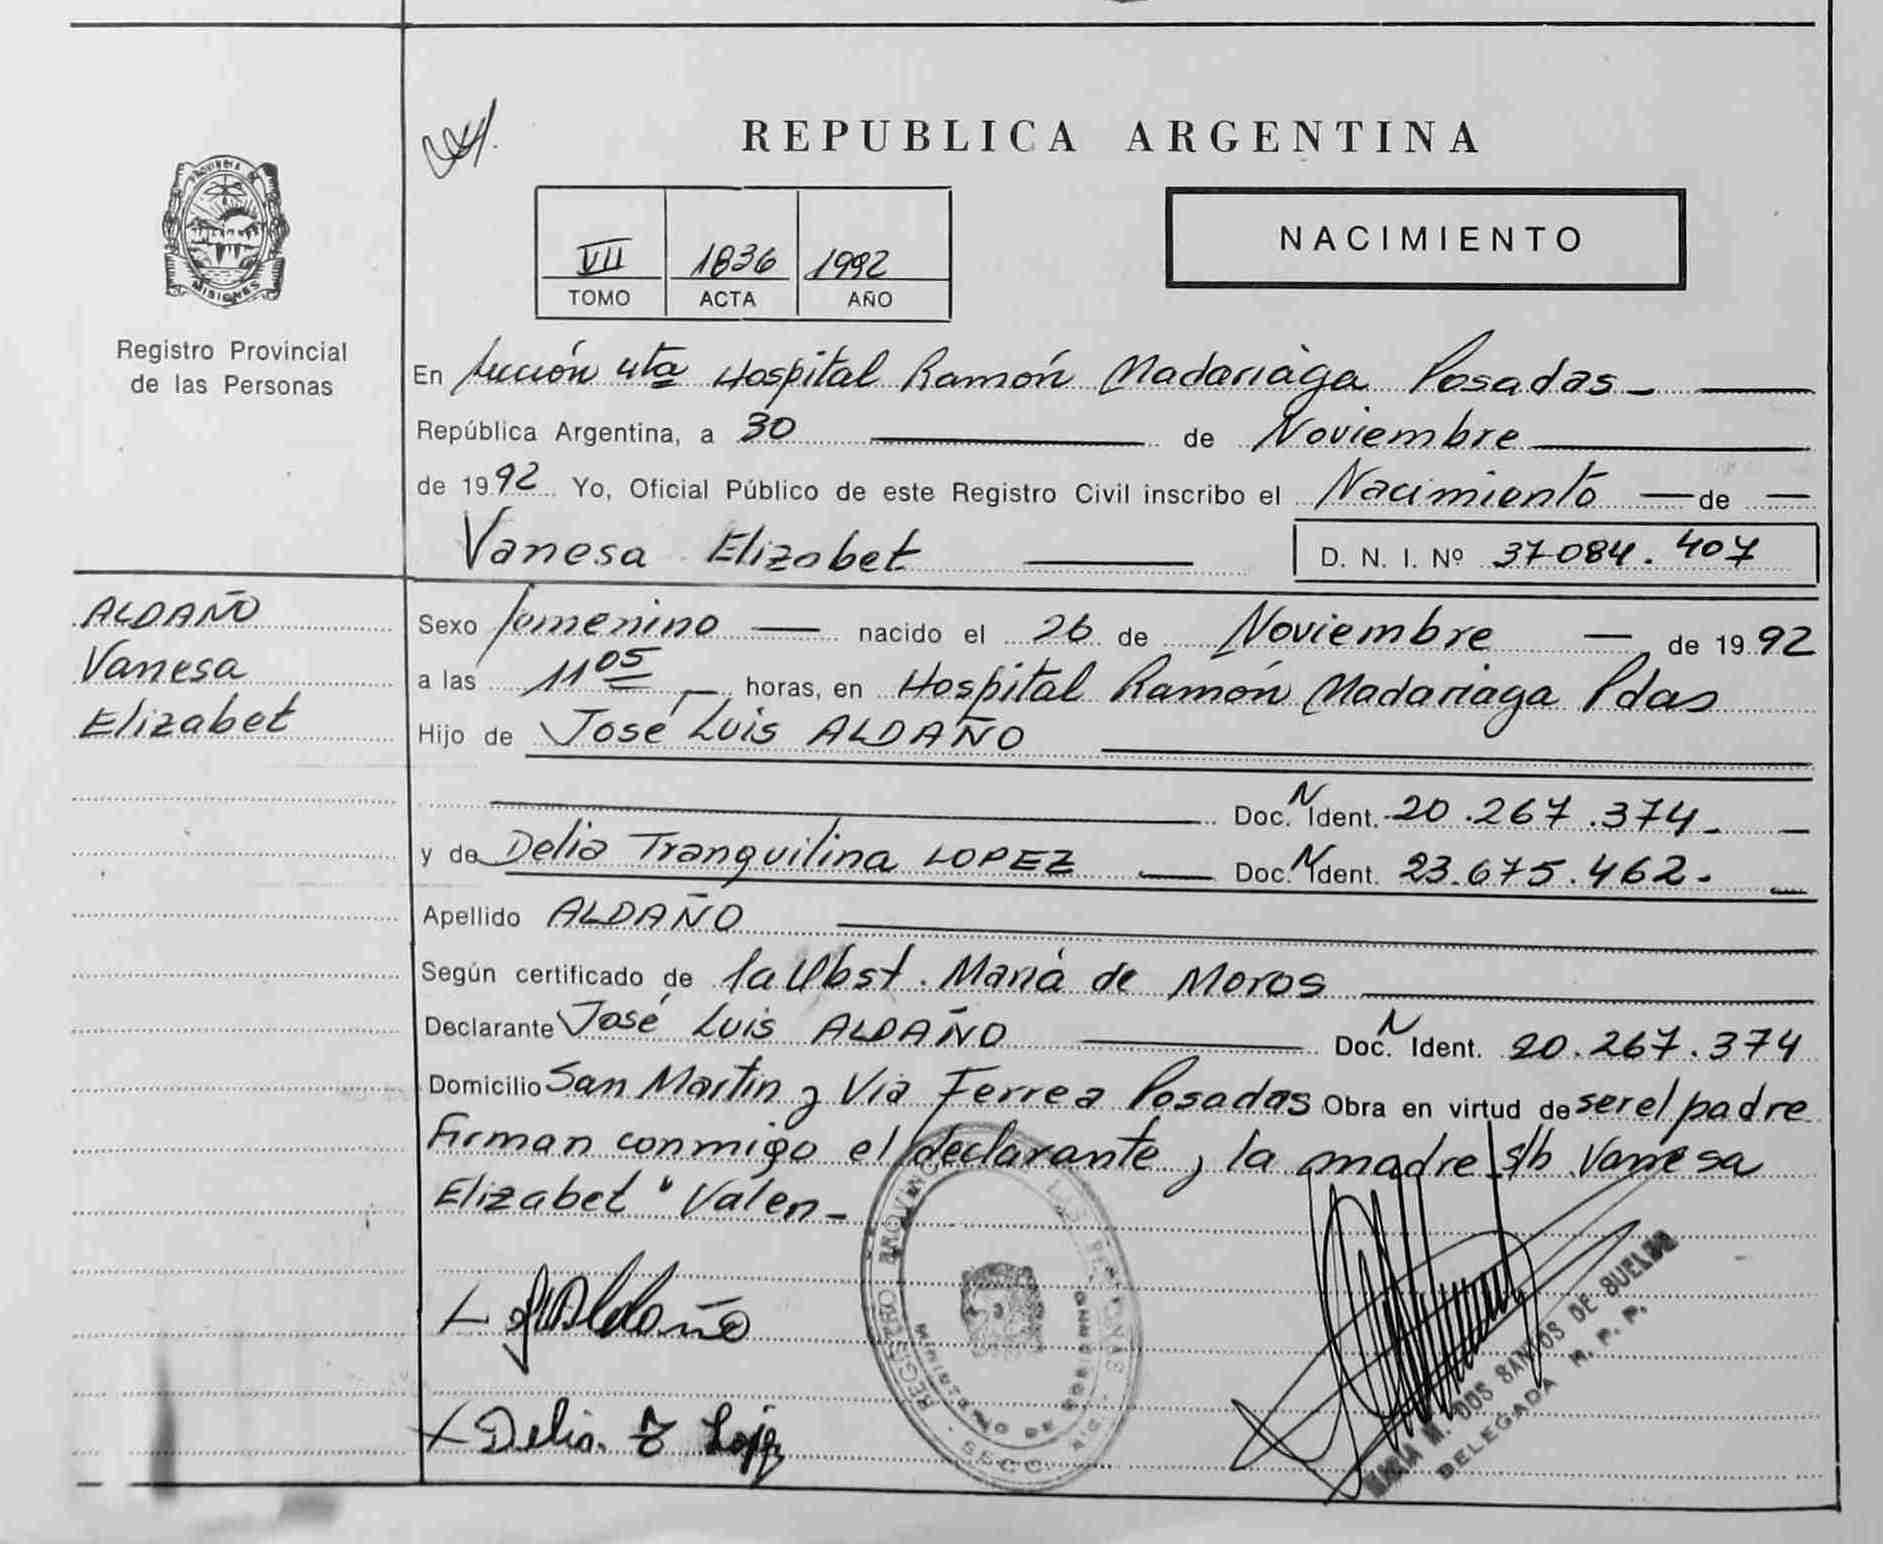 REPUBLICA ARGENTINA
PROVINCIA DE
MISIONES
Registro Provincial
de las Personas
VII 1836 1992
TOMO ACTA AÑO
NACIMIENTO
En Sección 4ta Hospital Ramón Madariaga Posadas
República Argentina, a 30 de Noviembre
de 1992 Yo, Oficial Público de este Registro Civil inscribo el Nacimiento de
Vanesa Elizabet D. N. I. Nº 37.084.407
ALDAÑO
Vanesa
Elizabet
Sexo femenino nacido el 26 de Noviembre de 1992
a las 11 05 horas, en Hospital Ramón Madariaga Pdas
Hijo de José Luis ALDAÑO
Doc. N Ident. 20.267.374
y de Delia Tranquilina LOPEZ Doc. N Ident. 23.675.462
Apellido ALDAÑO
Según certificado de la Obst. María de Moros
Declarante José Luis ALDAÑO Doc. N Ident. 20.267.374
Domicilio San Martín y Via Ferrea Posadas Obra en virtud de ser el padre
Firman conmigo el declarante y la madre s/b Vanesa
Elizabet " Valen
Aldaño
Delia T Lopez
REGISTRO PROVINC LAS PERSONAS
MINISTERIO DE GOBIERNO
SECC
MARIA M. DOS SANTOS DE BUELDO
DELEGADA R. P. P.